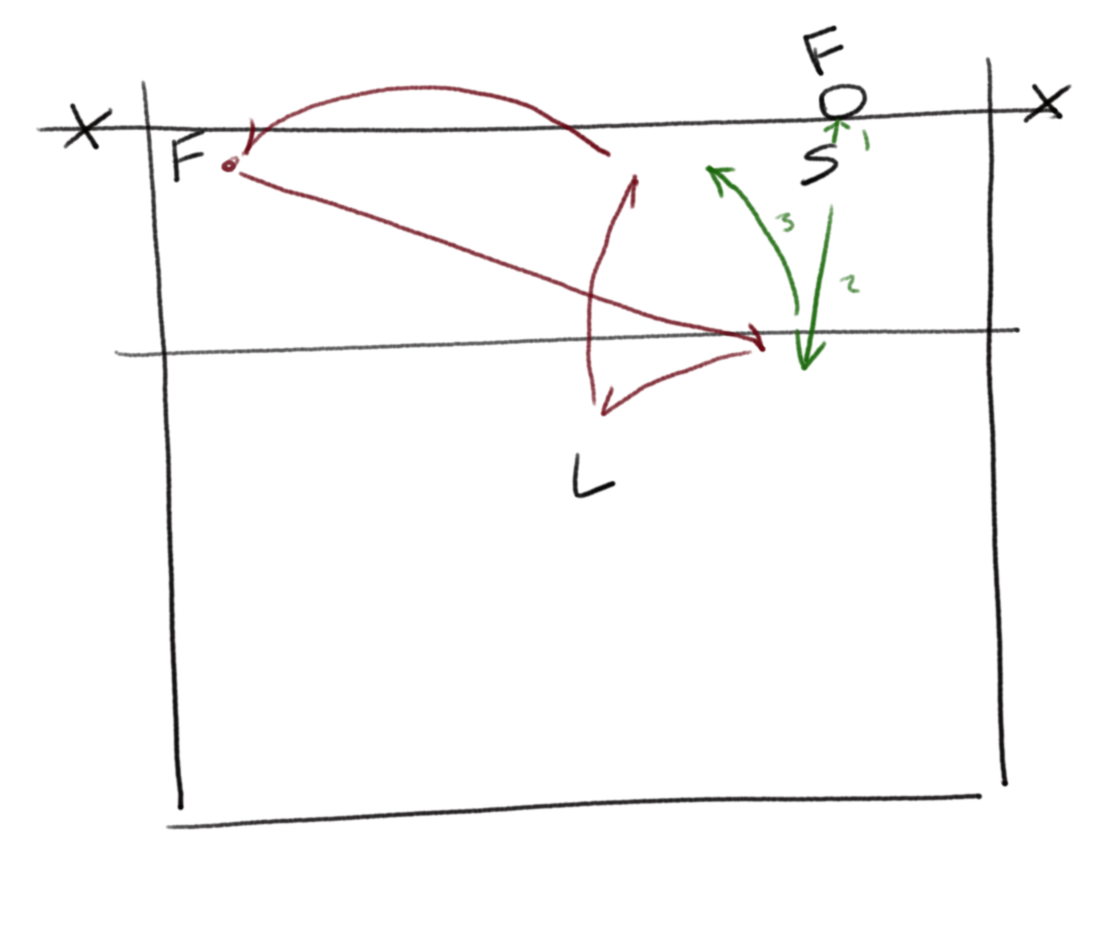 F
X X
F O
S 1
3
2
L